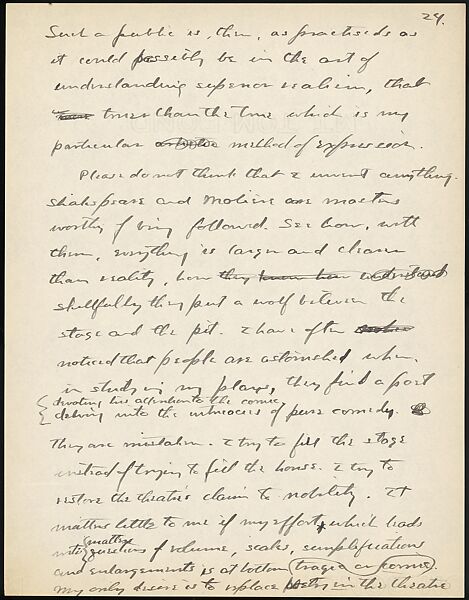 24.
Such a public is, then, as practised as
it could possibly be in the art of
understanding superior realism, that
truer than the true which is my
particular method of expression.
Please do not think that I invent anything.
Shakespeare and Molière are masters
worthy of being followed. See how, with
them, everything is larger and clearer
than reality, how they know how
skillfully they put a wolf between the
stage and the pit. I have often
noticed that people are astonished when,
in studying my plays, they find a poet
devoting his attention to the comic,
delving into the intricacies of pure comedy.
They are mistaken. I try to fill the stage
instead of trying to fill the house. I try to
restore the theatre's claim to nobility. It
matters little to me if my effort, which leads
matters
into questions of volume, scale, simplifications
and enlargements is at bottom tragic or comic.
My only desire is to replace poetry in the theatre